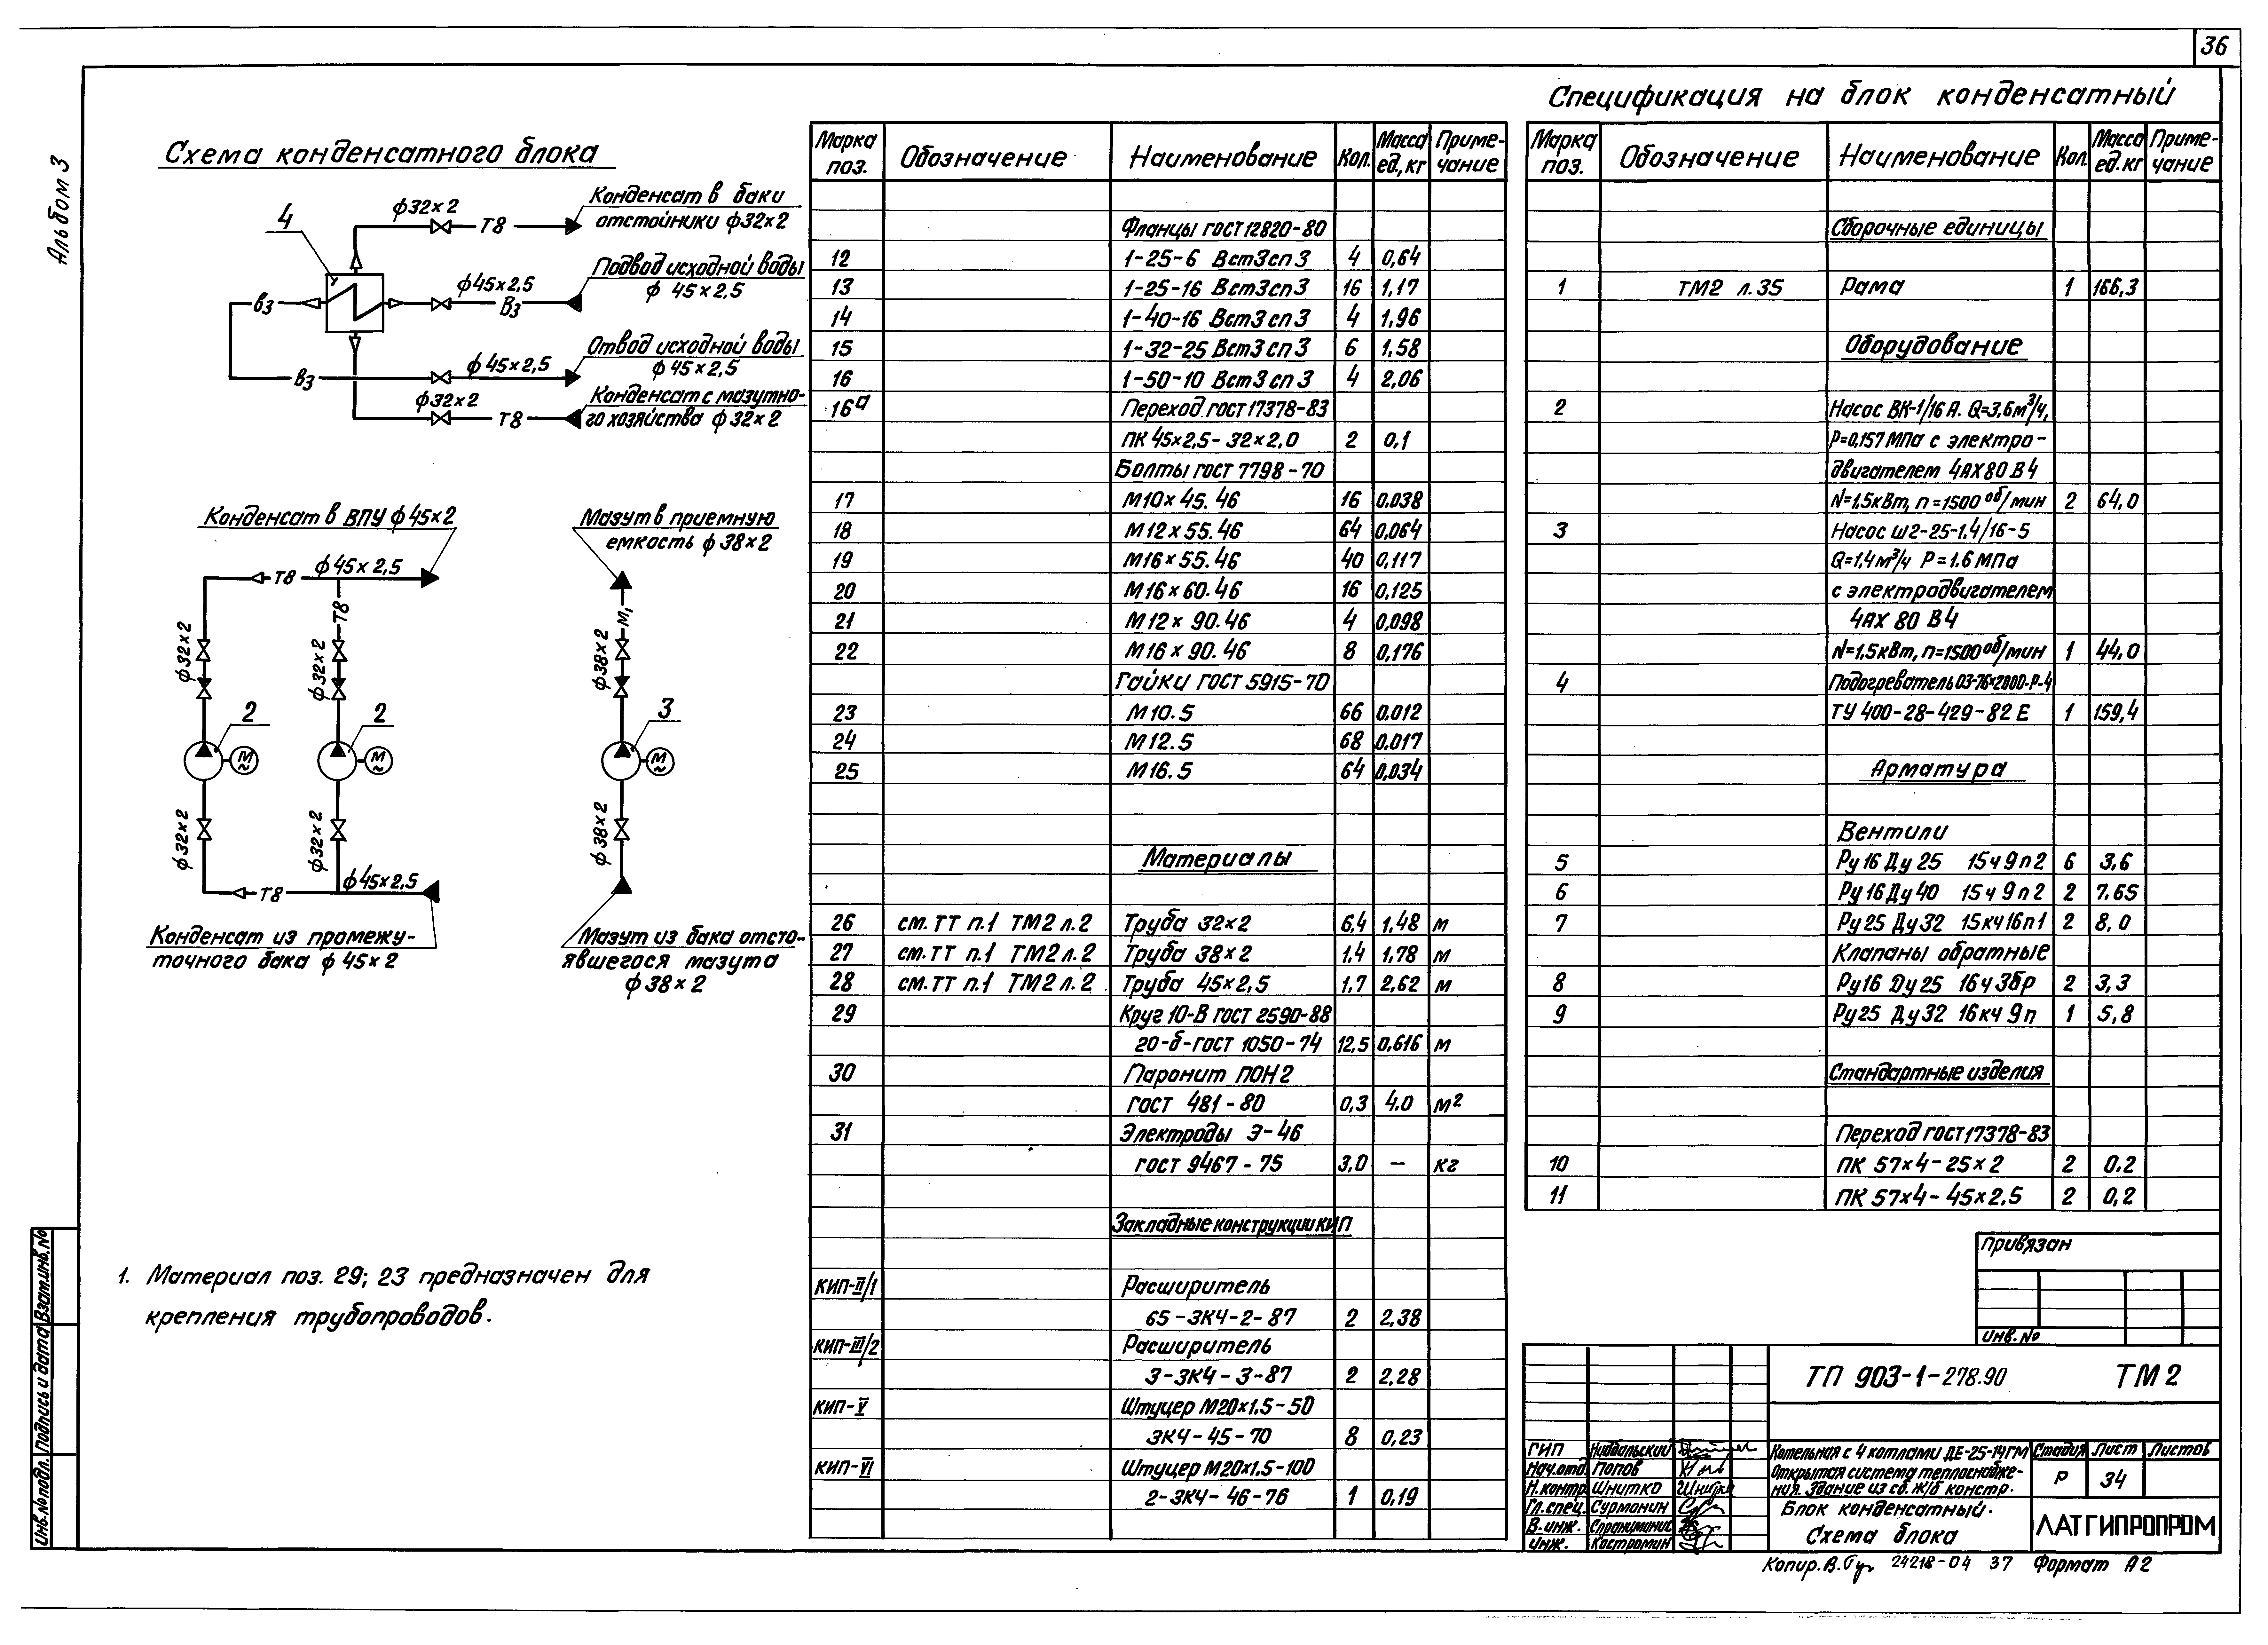 36
Альбом 3
Спецификация на блок конденсатный
Схема конденсатного блока
4
ф32×2
Т8
Конденсат в баки
отстойники ф32×2
ф45×2,5
В3
Подвод исходной воды
ф 45×2,5
В3
В3
ф45×2,5
Отвод исходной воды
ф45×2,5
ф32×2
Т8
Конденсат с мазутно-
го хозяйства ф32×2
Конденсат в ВПУ ф45×2
Т8
ф45×2,5
Т8
ф32×2
ф32×2
2
2
М
~
М
~
ф32×2
ф32×2
Т8
ф45×2,5
Конденсат из промежу-
точного бака ф45×2
Мазут в приемную
емкость ф38×2
М1
ф38×2
3
М
~
ф38×2
Мазут из бака отсто-
явшегося мазута
ф38×2
1. Материал поз. 29; 23 предназначен для
крепления трубопроводов.
Марка поз. Обозначение Наименование Кол. Масса ед., кг Приме-чание
Фланцы ГОСТ 12820-80
12 1-25-6 Вст3сп3 4 0,64
13 1-25-16 Вст3сп3 16 1,17
14 1-40-16 Вст3сп3 4 1,96
15 1-32-25 Вст3сп3 6 1,58
16 1-50-10 Вст3сп3 4 2,06
16а Переход ГОСТ 17378-83
ПК 45×2,5-32×2,0 2 0,1
Болты ГОСТ 7798-70
17 М10×45.46 16 0,038
18 М12×55.46 64 0,064
19 М16×55.46 40 0,117
20 М16×60.46 16 0,125
21 М12×90.46 4 0,098
22 М16×90.46 8 0,176
Гайки ГОСТ 5915-70
23 М10.5 66 0.012
24 М12.5 68 0,017
25 М16.5 64 0,034
Материалы
26 см. ТТ п.1 ТМ2 л.2 Труба 32×2 6,4 1,48 м
27 см. ТТ п.1 ТМ2 л.2 Труба 38×2 1.4 1,78 м
28 см. ТТ п.1 ТМ2 л.2 Труба 45×2,5 1,7 2,62 м
29 Круг 10-В ГОСТ 2590-88
20-б-ГОСТ 1050-74 12,5 0,616 м
30 Паронит ПОН2
ГОСТ 481-80 0,3 4.0 м2
31 Электроды Э-46
ГОСТ 9467-75 3,0 — кг
Закладные конструкции КИП
КИП-II/1 Расширитель
65-ЗК4-2-87 2 2,38
КИП-III/2 Расширитель
3-ЗК4-3-87 2 2,28
КИП-V Штуцер М20×1.5-50
ЗК4-45-70 8 0,23
КИП-VI Штуцер М20×1.5-100
2-ЗК4-46-76 1 0,19
Марка поз. Обозначение Наименование Кол. Масса ед. кг Приме-чание
Сборочные единицы
1 ТМ2 л.35 Рама 1 166,3
Оборудование
2 Насос ВК-1/16 А. Q=3,6м³/ч,
Р=0,157 МПа с электро-
двигателем 4АХ80 В4
N=1.5кВт, n=1500 об/мин 2 64,0
3 Насос ш2-25-1,4/16-5
Q=1,4м³/ч Р=1.6 МПа
с электродвигателем
4АХ 80 В4
N=1.5кВт, n=1500 об/мин 1 44,0
4 Подогреватель 03-76×2000-Р-4
ТУ 400-28-429-82 Е 1 159,4
Арматура
Вентили
5 Ру16 Ду 25 15ч9п2 6 3,6
6 Ру16 Ду40 15ч9п2 2 7.65
7 Ру25 Ду32 15кч16п1 2 8,0
Клапаны обратные
8 Ру16 Ду25 16ч3бр 2 3,3
9 Ру25 Ду32 16кч9п 1 5,8
Стандартные изделия
Переход ГОСТ 17378-83
10 ПК 57×4-25×2 2 0.2
11 ПК 57×4-45×2,5 2 0,2
Привязан
Инв.№
ТП 903-1-278.90 ТМ2
ГИП
Нач.отд. Попов
Н.контр. Шнитко
Гл.спец. Сурмонин
В.инж.
Инж. Костромин
Котельная с 4 котлами ДЕ-25-14ГМ
Открытая система теплоснабже-
ния. Здание из сб. ж/б констр.
Стадия Лист Листов
Р 34
Блок конденсатный.
Схема блока
ЛАТГИПРОПРОМ
Копир. В. 24218-04 37 Формат А2
Инв.№подл. Подпись и дата Взам.инв.№